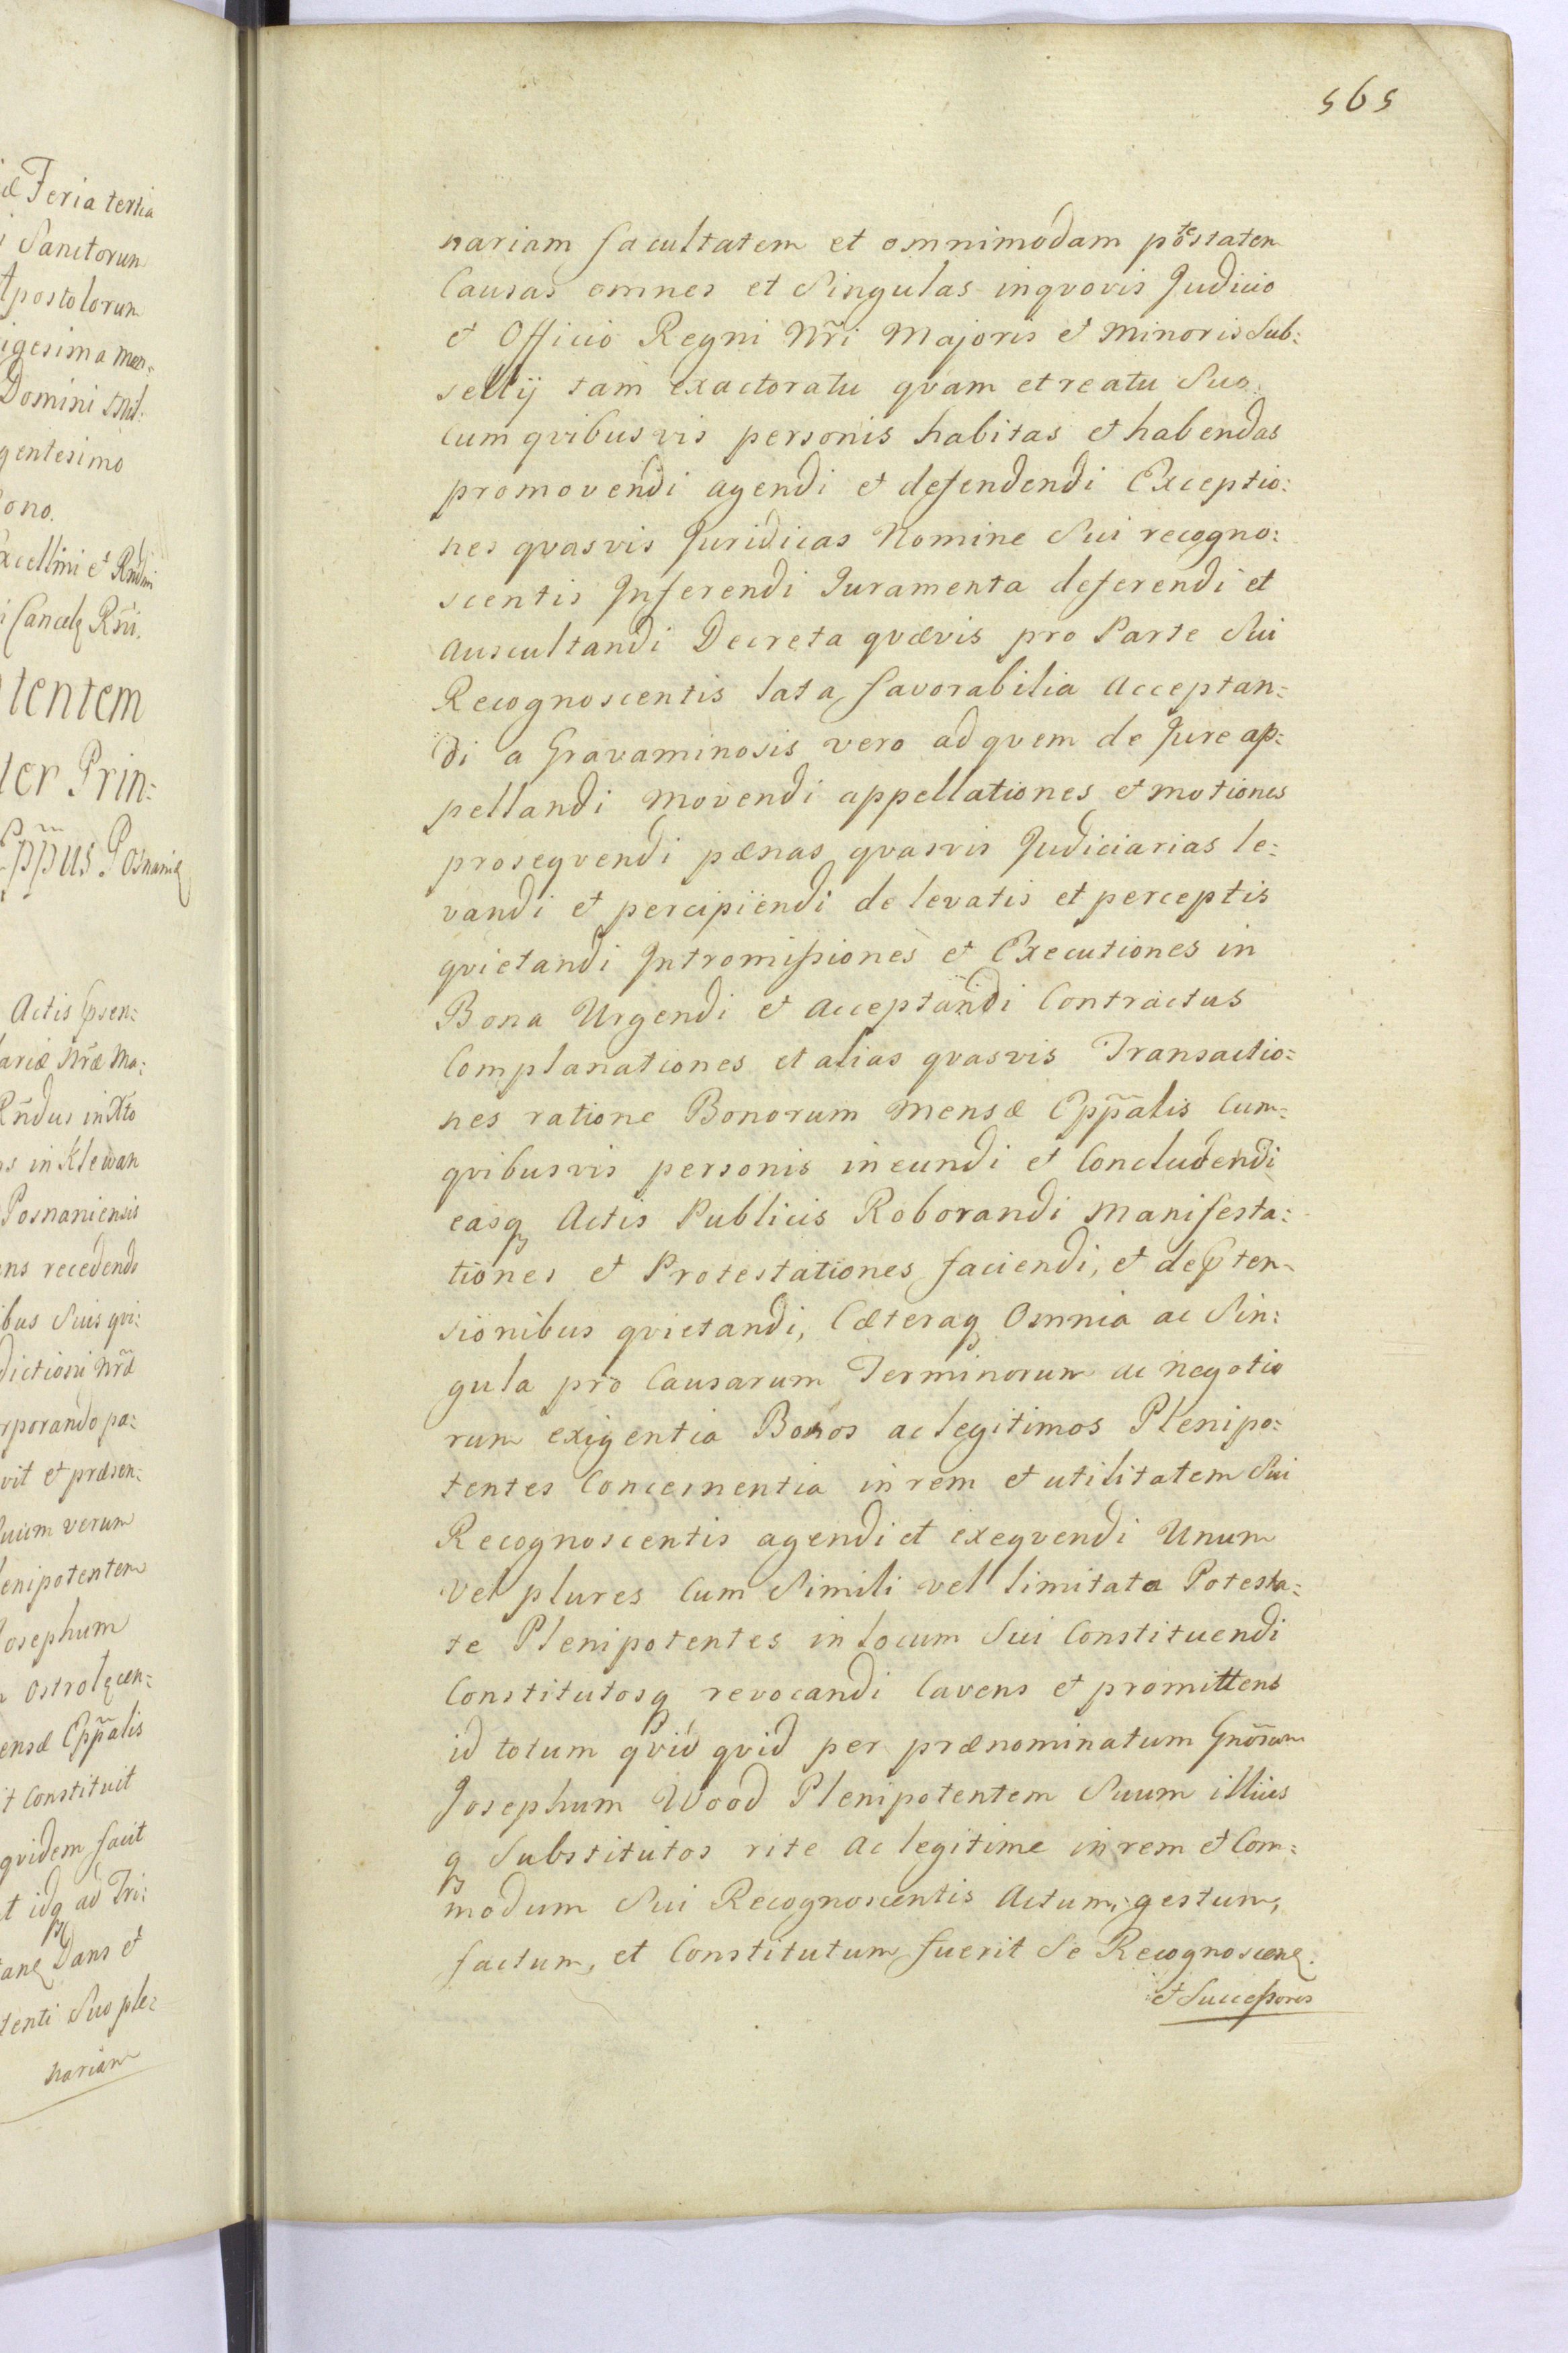 æ Feria tertia
i Sanctorum
Apostolorum
igesima men:
Domini Mil:
gentesimo
ono.
xcellmi et Rndmi
i Cancel Rni.
tentem
ter Prin:
Eppus Posnaniæ
Actis
ariæ Nræ Ma:
Rndus in Xto
ns in Klewan
Posnaniensis
ens recedendo
ibus Suis qvi:
dictioni Nræ
rporando pa:
vit et præsen:
Suum verum
lenipotentem
Josephum
Ostrolęcen:
ensæ Eppalis
it Constituit
qvidem facit
t idq ad Tri:
Dans et
tenti Suo ple:
nariam
565
nariam facultatem et omnimodam potestatem
Causas omnes et Singulas inqvovis Judicio
et Officio Regni Nri Majoris et Minoris Sub:
sellij tam exactoratu qvam et reatu Suo
Cum qvibusvis personis habitas et habendas
promovendi agendi et defendendi Exceptio:
nes qvasvis Juridicas Nomine Sui recogno:
scentis Inferendi Juramenta deferendi et
Auscultandi Decreta qvævis pro Parte Sui
Recognoscentis lata favorabilia Acceptan:
di a Gravaminosis vero ad qvem de Jure ap:
pellandi Movendi appellationes et motiones
proseqvendi pænas qvasvis Judiciarias le:
vandi et percipiendi de levatis et perceptis
qvietandi Intromissiones et Executiones in
Bona Urgendi et Acceptandi Contractus
Complanationes et alias qvasvis Transactio:
nes ratione Bonorum Mensæ Eppalis Cum:
qvibusvis personis ineundi et Concludendi
easq Actis Publicis Roborandi Manifesta:
tiones et Protestationes faciendi, et de Pten:
sionibus qvietandi, Cæteraq Omnia ac Sin:
gula pro Causarum Terminorum ac Negotio
rum exigentia Bonos ac legitimos Plenipo:
tentes Concernentia in rem et utilitatem Sui
Recognoscentis agendi et exeqvendi Unum
Vel plures Cum Simili vel limitata Potesta:
te Plenipotentes in locum Sui Constituendi
Constitutosq revocandi Cavens et promittens
id totum qvid qvid per prænominatum Gnosum
Josephum Wood Plenipotentem Suum illius
q Substitutos rite Ac legitime in rem et Com:
modum Sui Recognoscentis Actum, gestum,
factum, et Constitutum fuerit Se Recognoscen.
et Successores